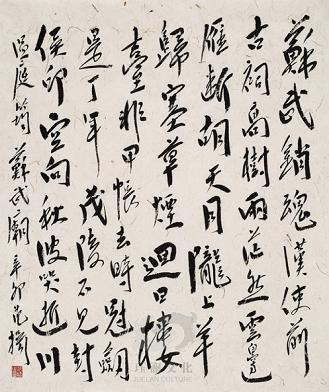 蘇武銷魂漢使前
古祠高樹兩茫然雲邊
雁斷胡天月隴上羊
歸塞草煙迴日樓
臺非甲帳去時冠劍
是丁年茂陵不見封
侯印空向秋波哭逝川
溫庭筠蘇武廟辛卯
JUELAN CULTURE